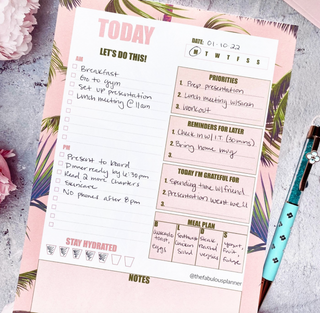 TODAY
LET'S DO THIS!
DATE: 01-10-22
M T W T F S S
AM
Breakfast
Go to gym
Set up presentation
Lunch meeting @ 11am
PM
Present to board
Dinner ready by 4:30pm
Read 2 more chapters
Skincare
No phones after 8pm
STAY HYDRATED
PRIORITIES
1. Prep presentation
2. Lunch meeting w/Sarah
3. Workout
REMINDERS FOR LATER
1. Check in w/ I.T. (30 mins)
2. Bring home mug
3.
TODAY I'M GRATEFUL FOR
1. Spending time w/ friend
2. Presentation went well
3.
MEAL PLAN
B
Avocado toast, eggs
L
Chicken Salad
D
Steak
S
Yogurt, Fruit,
@thefabulousplanner
NOTES